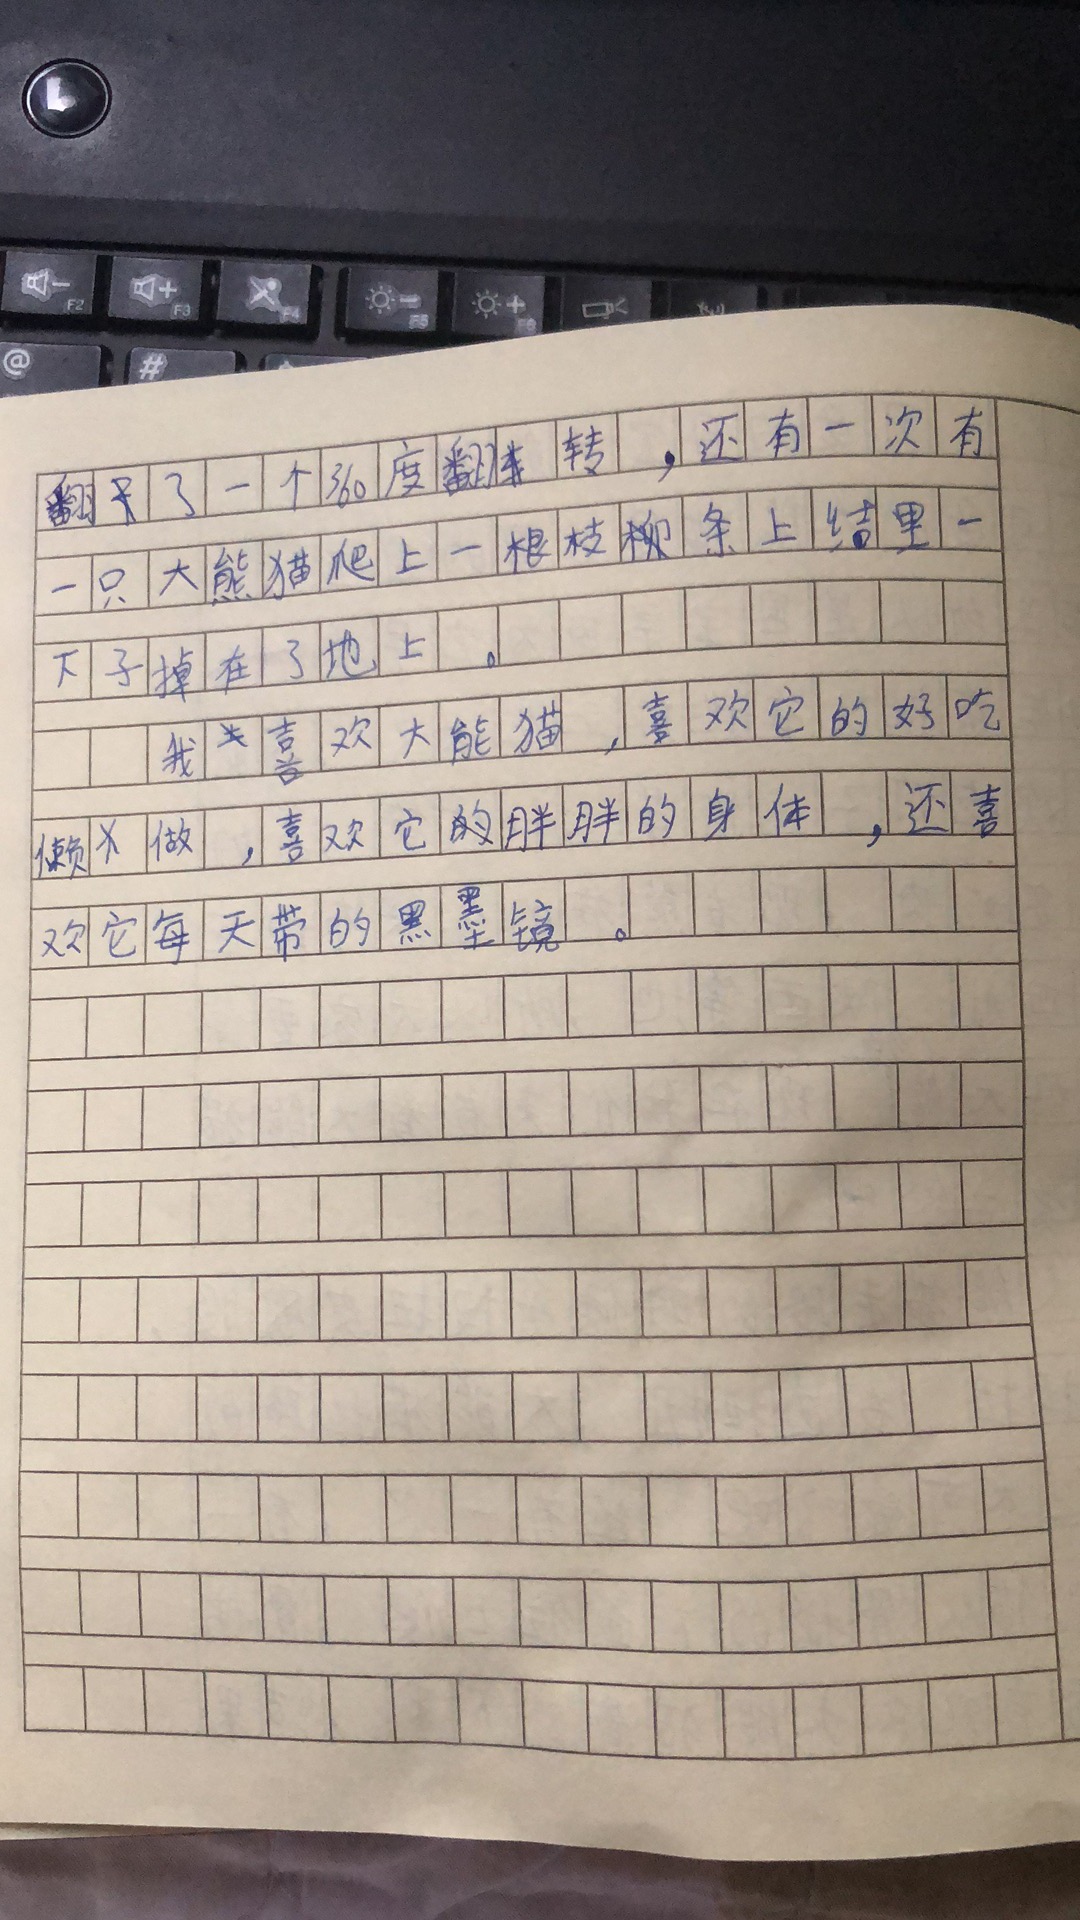 F2 F3 F4 F5 F6
@ #
翻了一个360度翻转，还有一次有
一只大熊猫爬上一根枝柳条上结里一
下子掉在了地上。
我喜欢大能猫，喜欢它的好吃
懒不做，喜欢它的胖胖的身体，还喜
欢它每天带的黑墨镜。